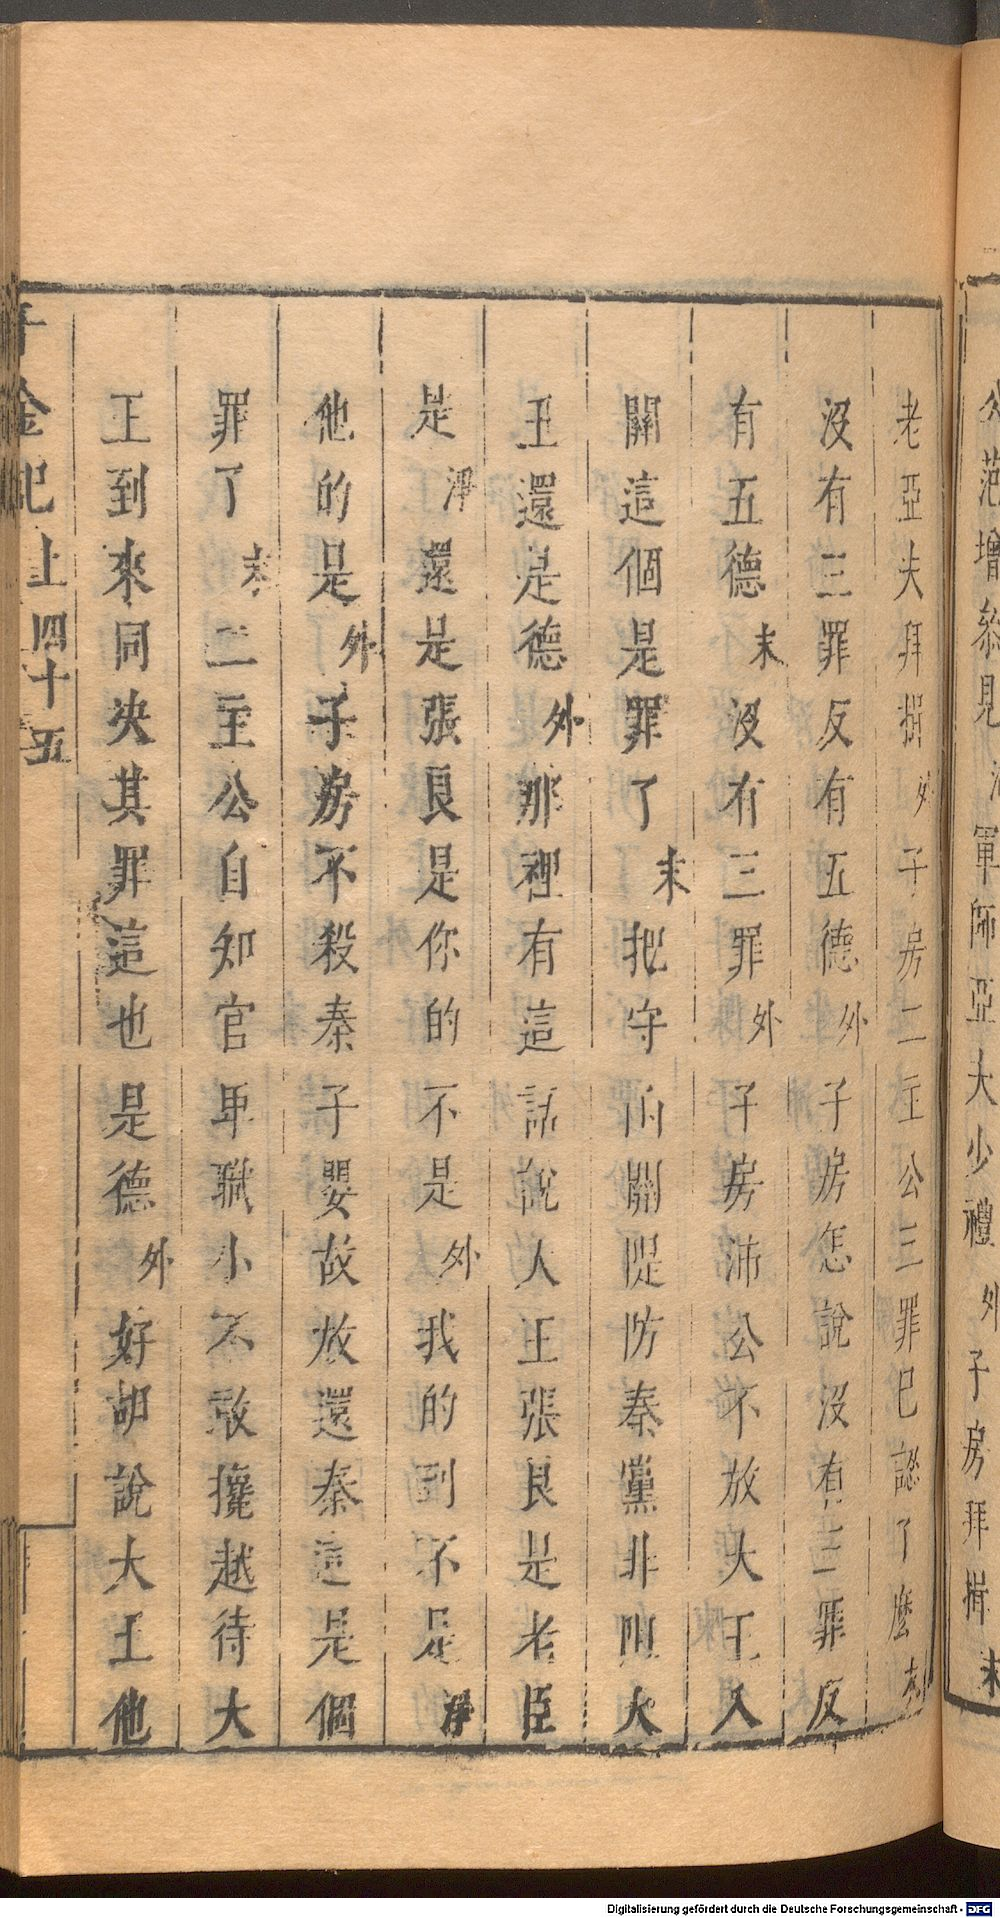 父范增叅見 軍師亞夫少禮外子房拜揖末
老亞夫拜揖外子房二主公三罪已認了麽末
沒有三罪反有五德外子房怎説沒有三罪反
有五德末沒有三罪外子房沛公不放大王入
關這個是罪了末把守的關隄防秦黨非阻大
王還是德外那裡有這話説人王張良是老臣
是淨還是張良是你的不是外我的到不是淨
他的是外子房不殺秦子嬰故放還秦這是個
罪了末二主公自知官卑職小不敢擅越待大
王到來同决其罪這也是德外好胡説大王他
千金記上 四十五
Digitalisierung gefördert durch die Deutsche Forschungsgemeinschaft - DFG